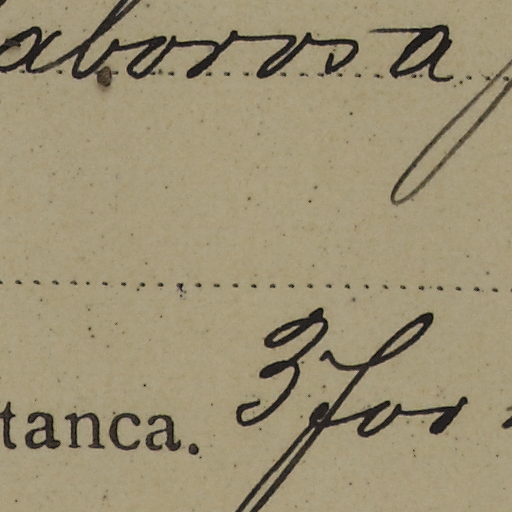 aborosa
tanca. 3 for